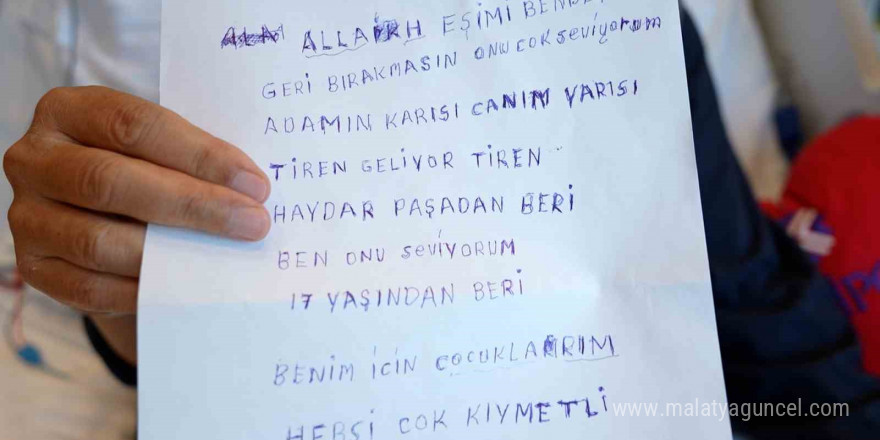 ALLAH EŞİMİ BENDEN
GERİ BIRAKMASIN ONU COK seviyorum
ADAMIN KARISI CANIM YARISI
TİREN GELİYOR TİREN
HAYDAR PAŞADAN BERİ
BEN ONU seviYORUM
17 YAŞINDAN BERİ
BENİM İCİN COCUKLARIM
HEBSİ COK KIYMETLİ
www.malatyaguncel.com